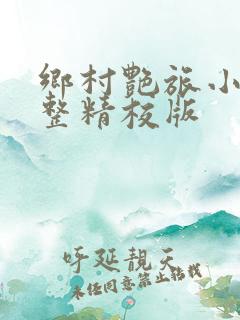 鄉村艷旅小
整精校版
呼延靚天
未经同意禁止转载